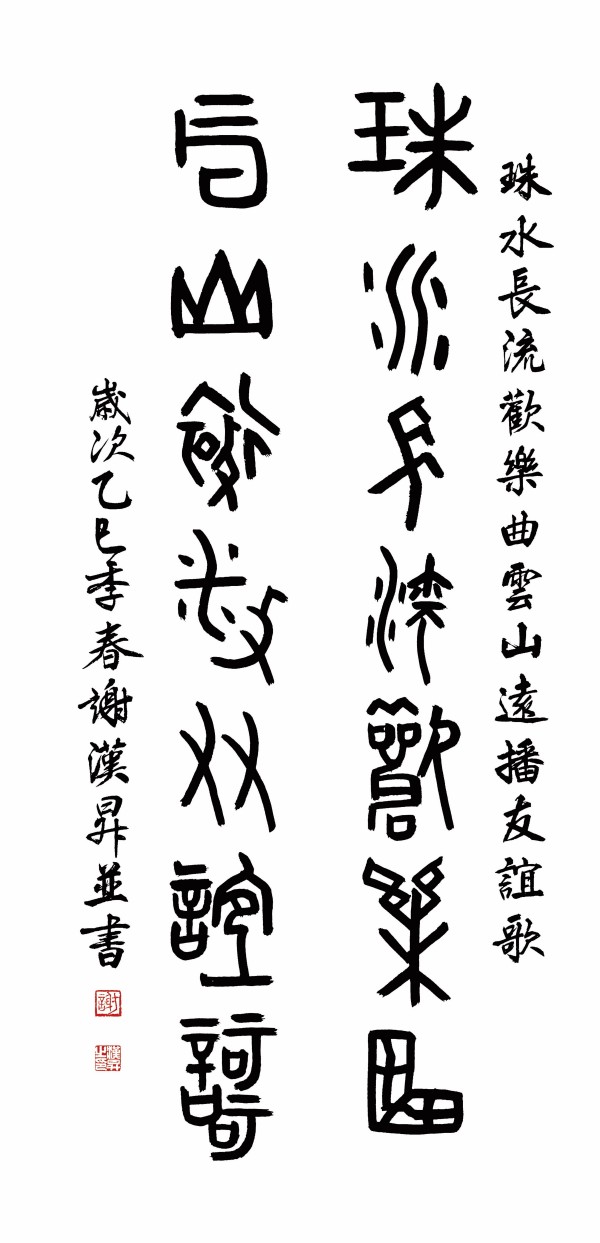 珠水長流歡樂曲雲山遠播友誼歌
珠水長流歡樂曲
雲山遠播友誼歌
歲次乙巳季春謝漢昇並書
謝
漢昇之印